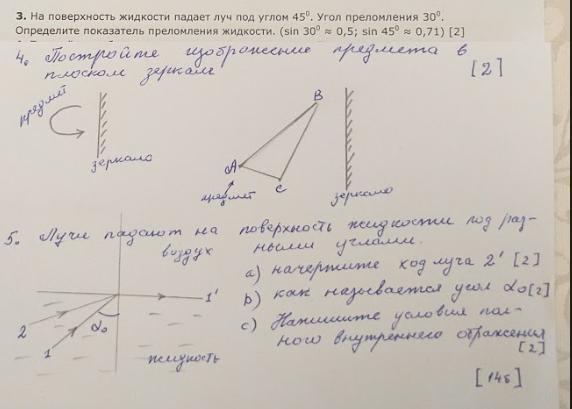 3. На поверхность жидкости падает луч под углом 45⁰. Угол преломления 30⁰.
Определите показатель преломления жидкости. (sin 30⁰ ≈ 0,5; sin 45⁰ ≈ 0,71) [2]
4. Постройте изображение предмета в
плоском зеркале [2]
предмет
зеркало
A B C
предмет
зеркало
5. Лучи падают на поверхность жидкости под раз-
ными углами.
воздух
a) начертите ход луча 2' [2]
b) как называется угол α₀ [2]
c) Напишите условия пол-
ного внутреннего отражения
[2]
1'
2
1
α₀
жидкость
[14б]